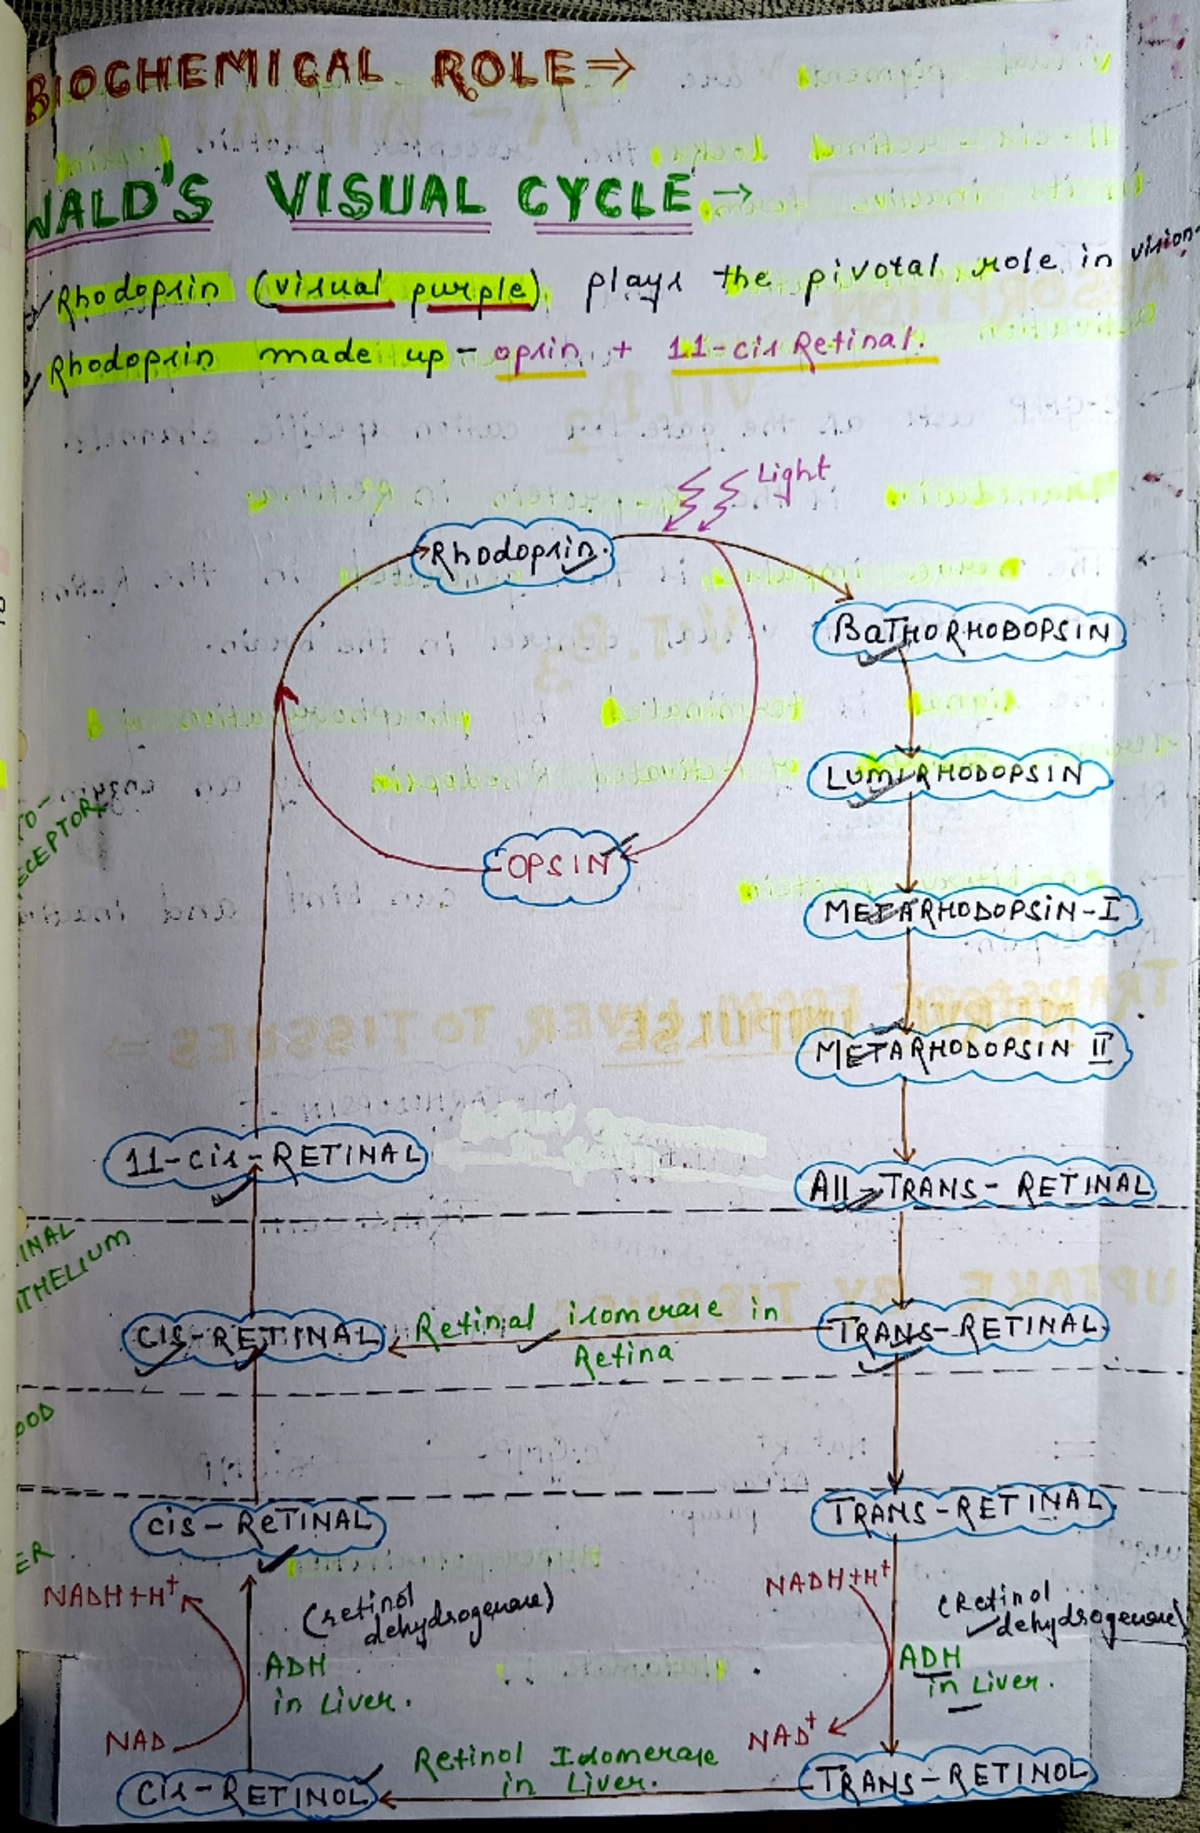 BIOCHEMICAL ROLE ⇒
WALD'S VISUAL CYCLE →
Rhodopsin (visual purple) plays the pivotal role in vision.
Rhodopsin made up - opsin + 11-cis Retinal.
Light
Rhodopsin
BATHORHODOPSIN
LUMIRHODOPSIN
OPSIN
METARHODOPSIN-I
METARHODOPSIN II
11-cis-RETINAL
All-TRANS-RETINAL
CIS-RETINAL
Retinal isomerase in
Retina
TRANS-RETINAL
cis-RETINAL
TRANS-RETINAL
NADH+H⁺
(retinol
dehydrogenase)
ADH
in Liver.
NAD
NADH+H⁺
(Retinol
dehydrogenase)
ADH
in Liver.
NAD⁺
Retinol Isomerase
in Liver.
Cis-RETINOL
TRANS-RETINOL